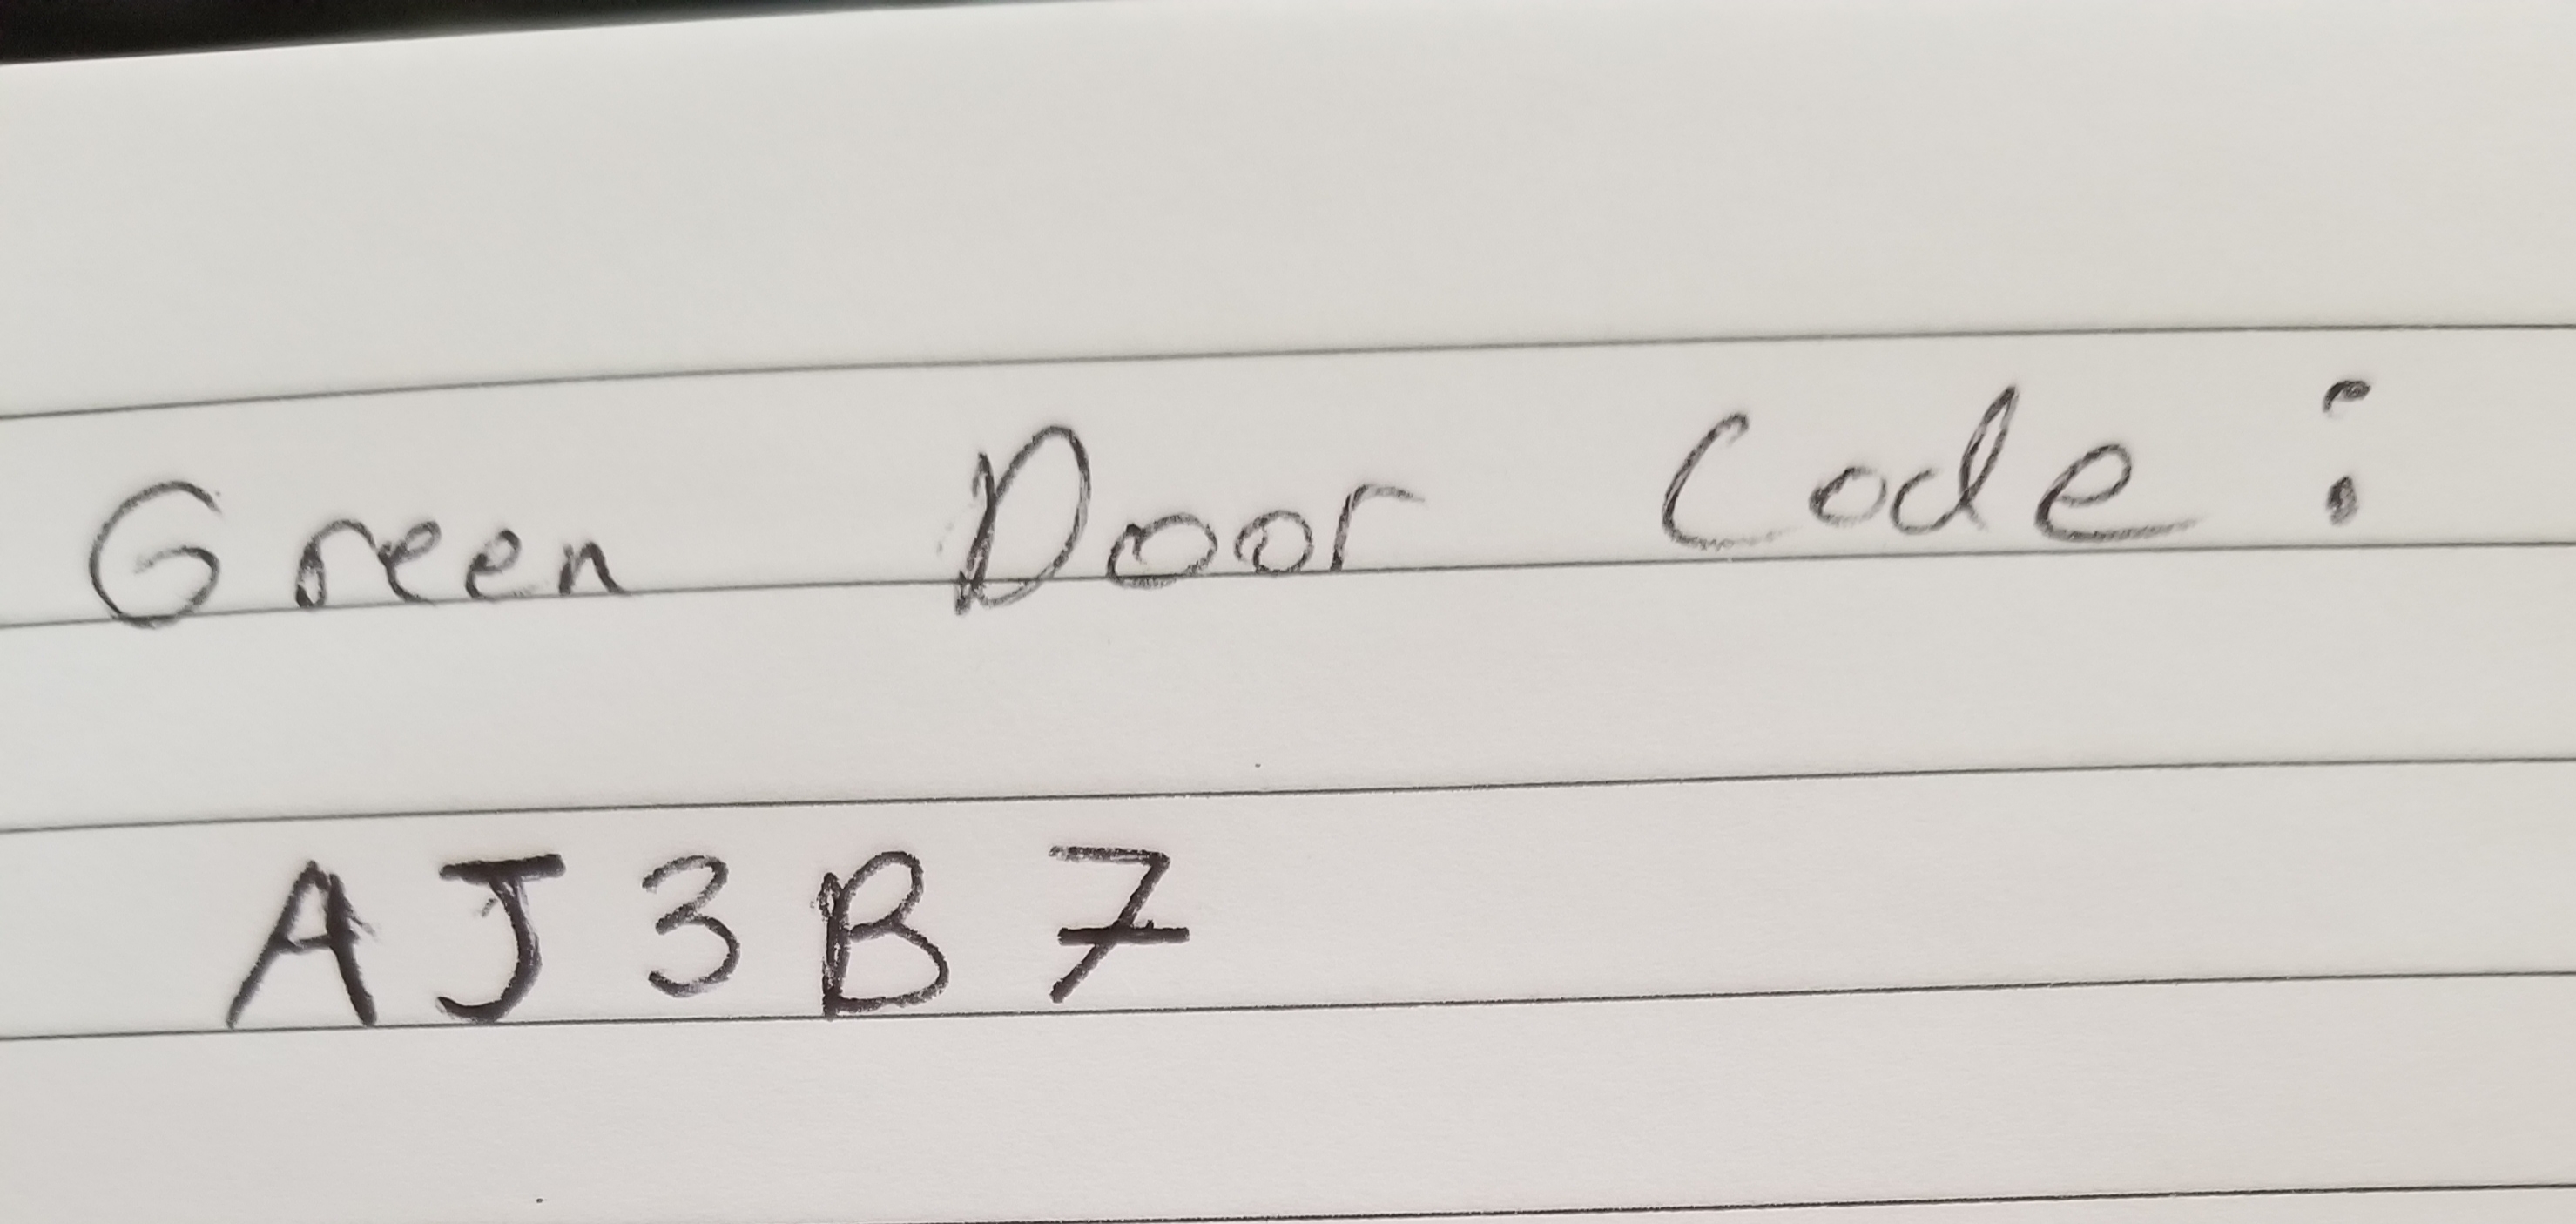 Green Door Code:
AJ3B7